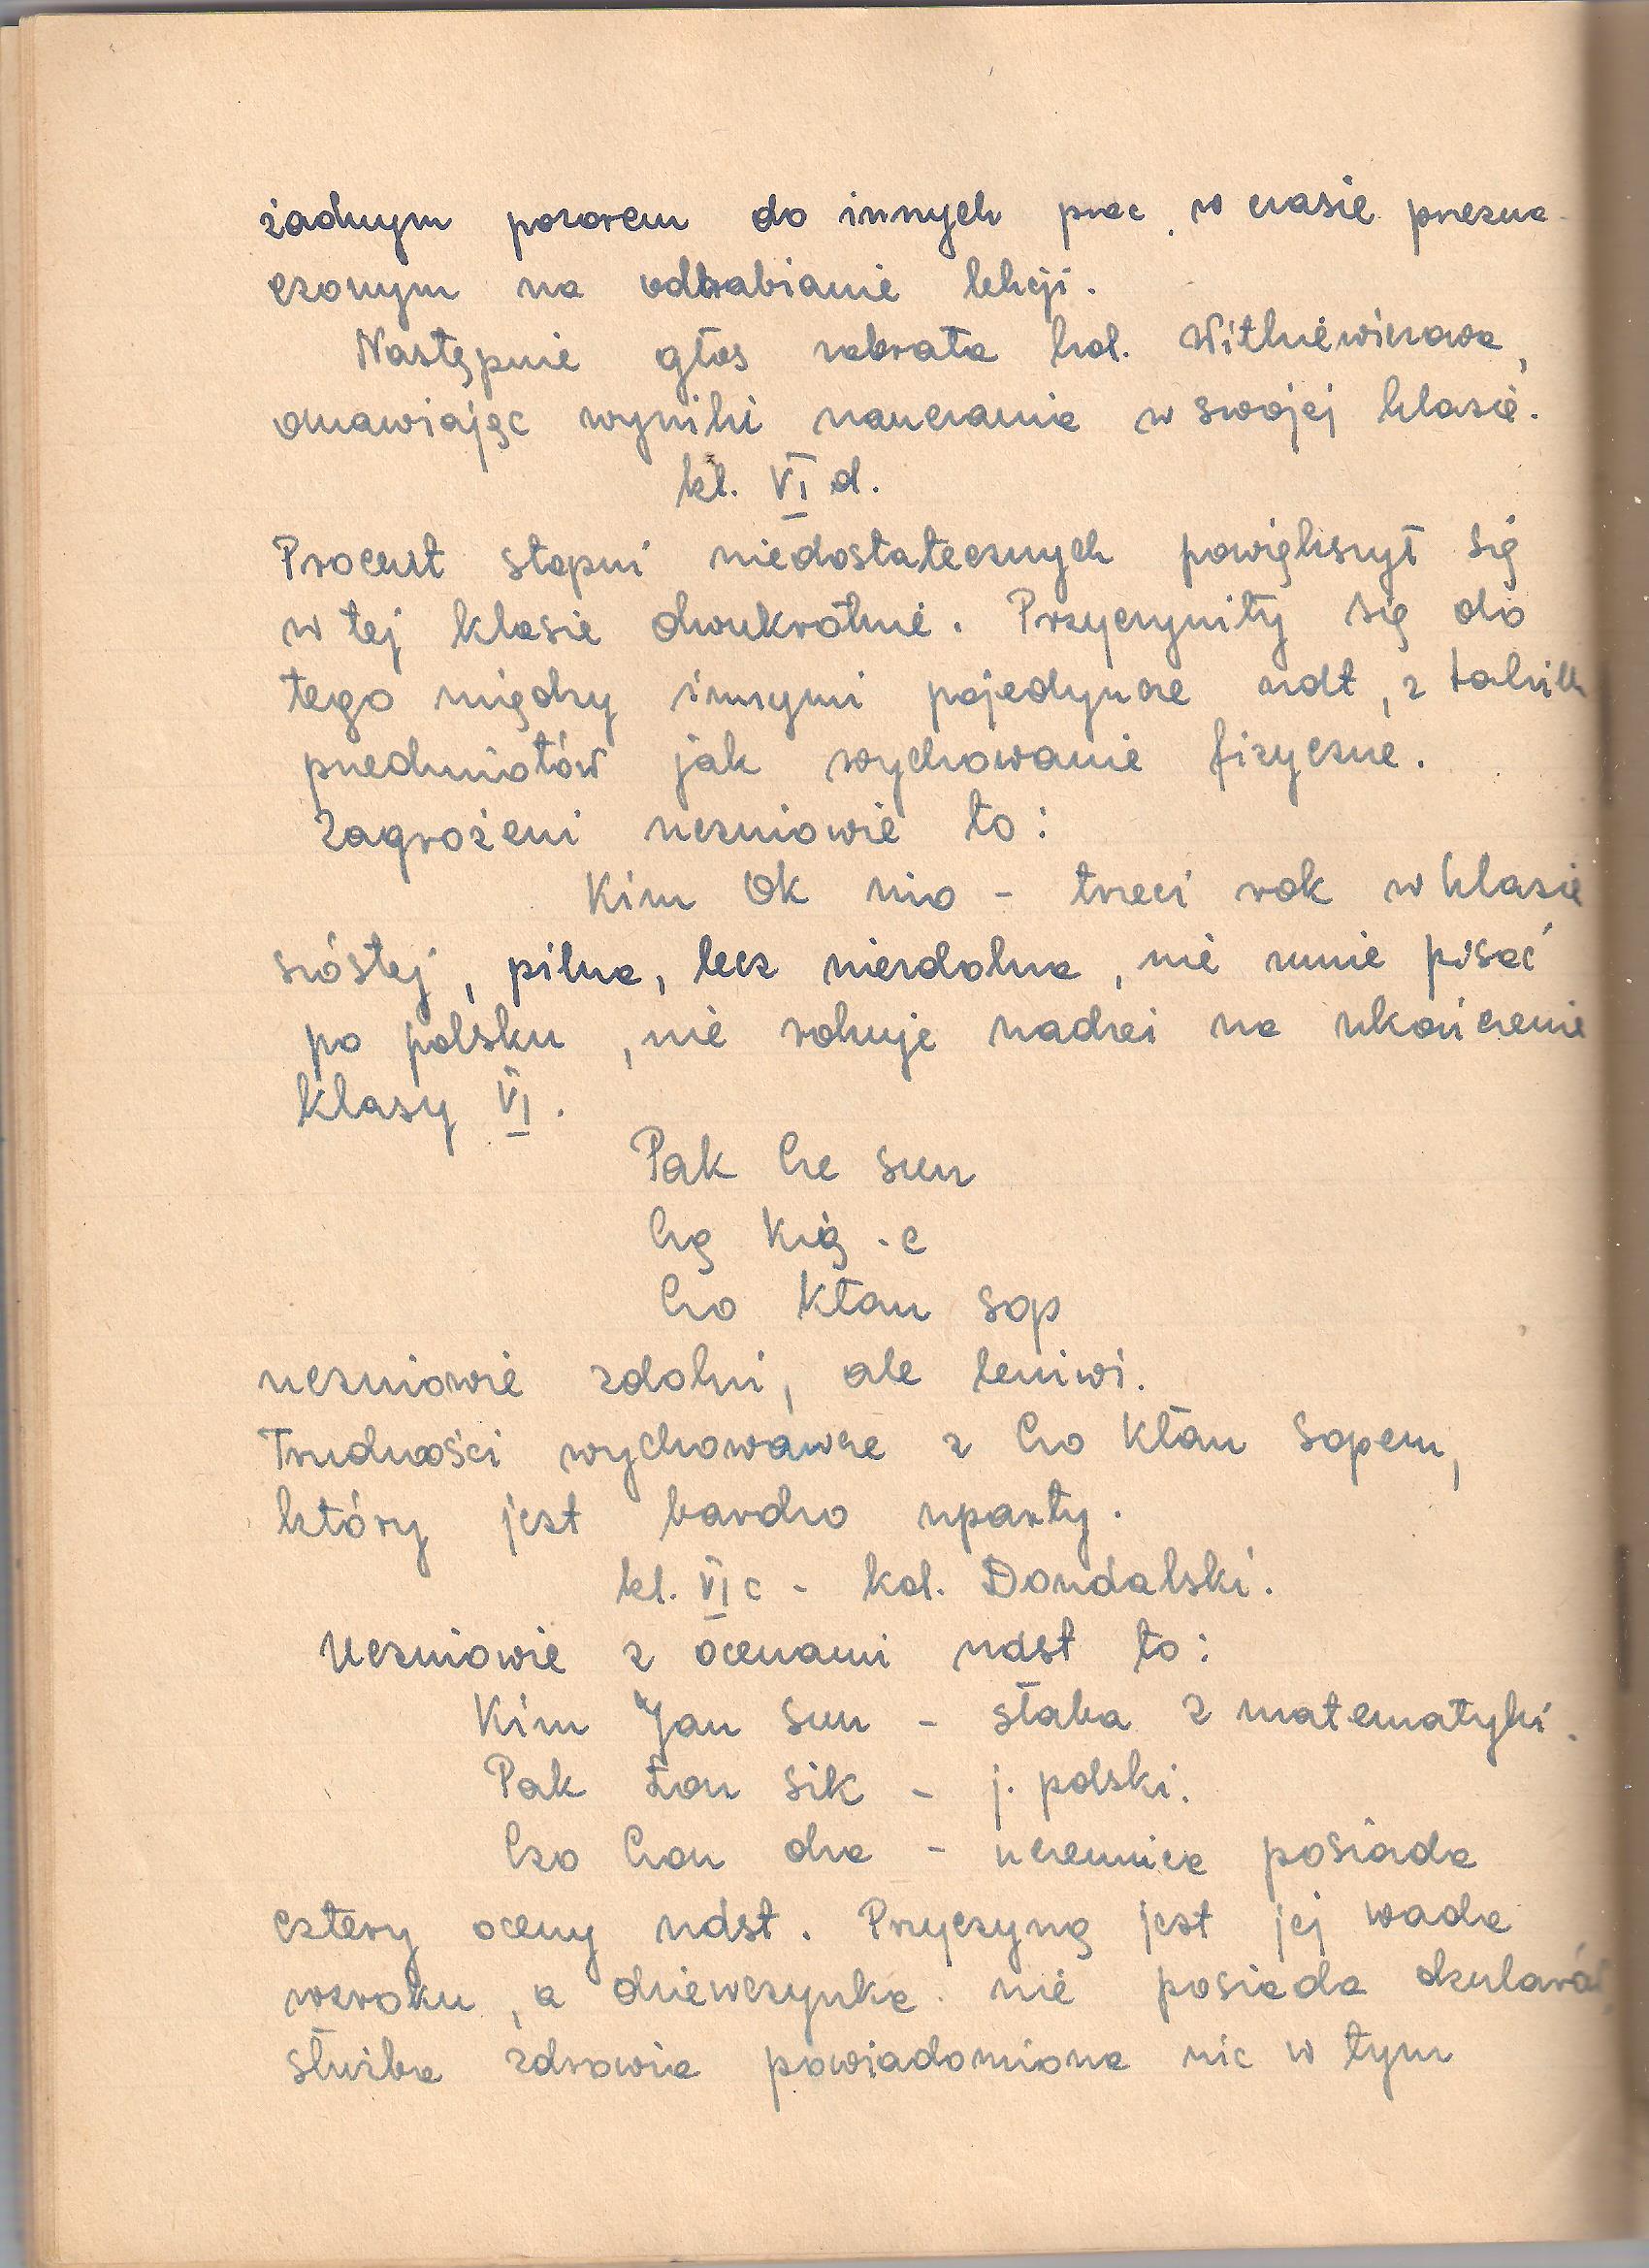 żadnym pozorem do innych prac w czasie przezna-
czonym na odrabianie lekcji.
Następnie głos zabrała kol. Witkiewiczowa,
omawiając wyniki nauczania w swojej klasie.
kl. VI d.
Procent stopni niedostatecznych powiększył się
w tej klasie dwukrotnie. Przyczyniły się do
tego między innymi pojedyncze ndt, z takich
przedmiotów jak wychowanie fizyczne.
Zagrożeni uczniowie to:
Kim Ok nio - trzeci rok w klasie
szóstej, pilna, lecz niezdolna, nie umie pisać
po polsku, nie rokuje nadziei na ukończenie
klasy VI.
Pak Cze sun
Czo Kłan sop
uczniowie zdolni, ale leniwi.
Trudności wychowawcze z Czo Kłan Sopem,
który jest bardzo uparty.
kl. VI c - kol. Dondalski.
Uczniowie z ocenami ndst to:
Kim Jan sun - słaba z matematyki.
Pak Łon sik - j. polski.
Czo Czon dza - uczennica posiada
cztery oceny ndst. Przyczyną jest jej wada
wzroku, a dziewczynka nie posiada okularów,
służba zdrowia powiadomiona nic w tym